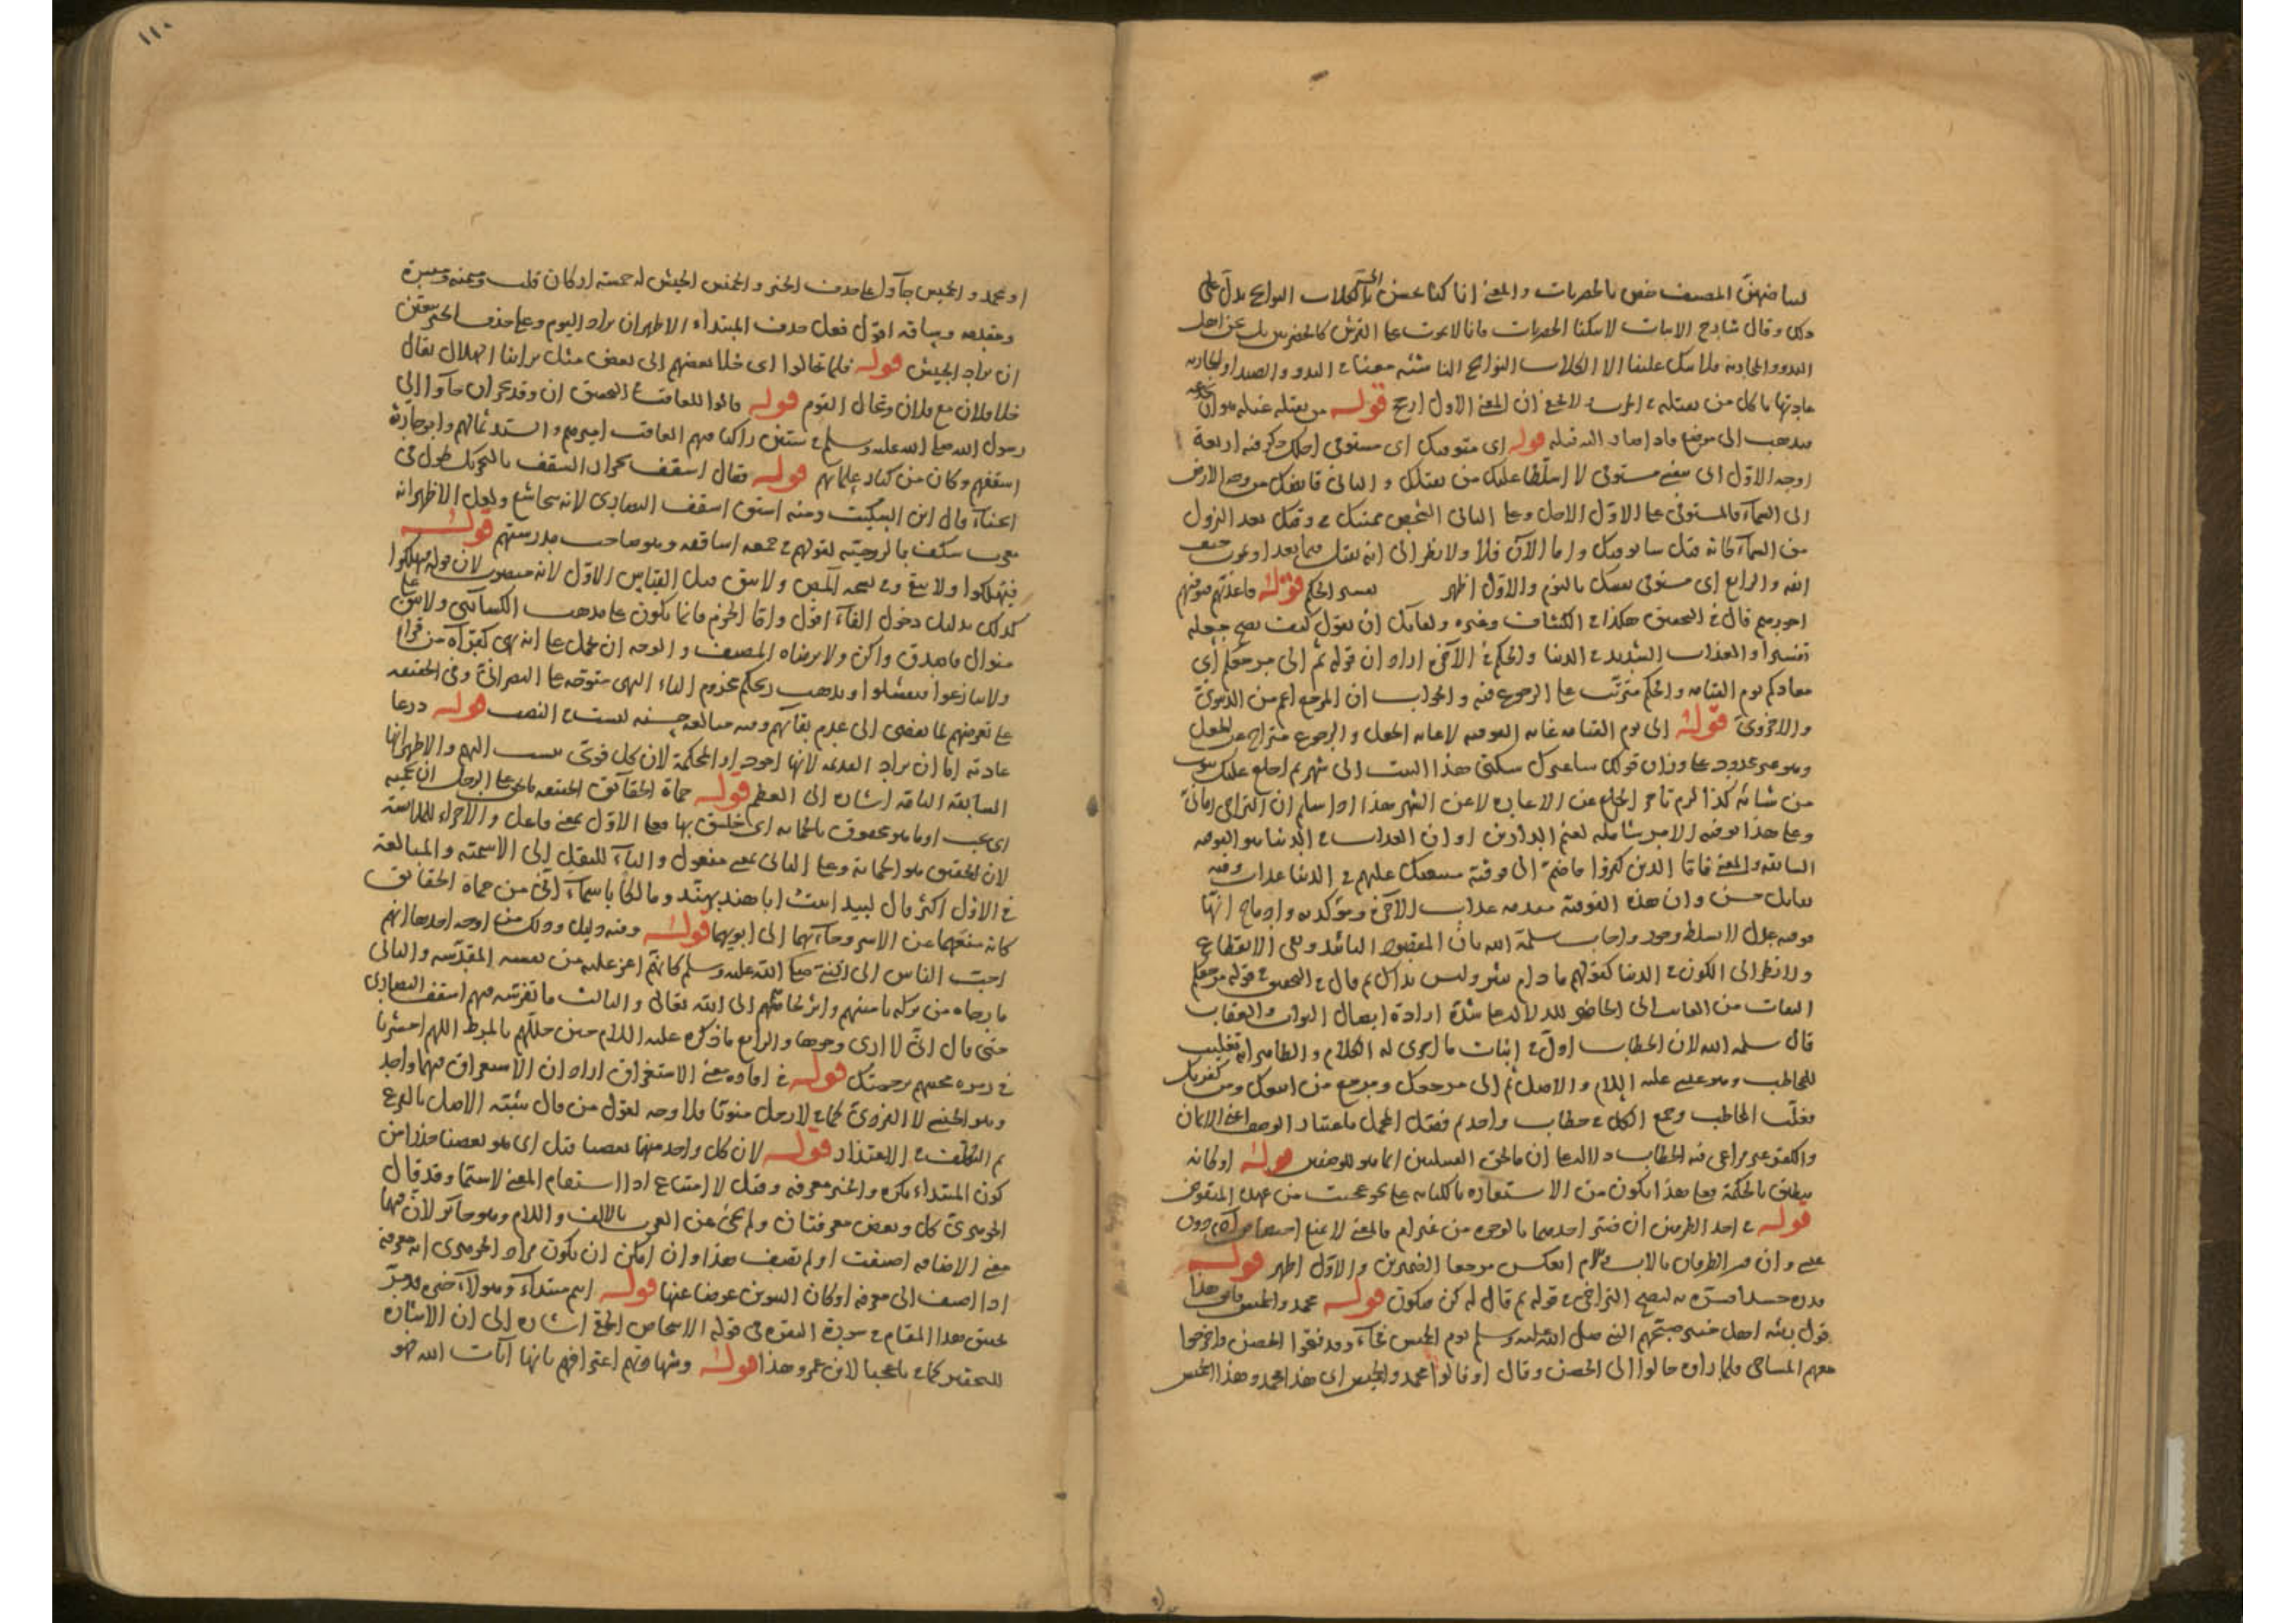 لبياضهن المصنف خص بالحضريات والمعنى انا كنا بحسن الحرب الكلاب النوابح يدل على
ذلك وقال شارح الابيات لا سكنا الحضريات فانا لا نموت على الفرش كالحضريين بل نحن اهل
البدو والمحاربة فلا تبك علينا الا الكلاب النوابح الناشئة معنا في البدو والصيد او
عادتها يأكل من نقتله في الحرب لا يخفى ان المعنى الاول ارجح قوله من يقتله غيلة هو ان
فيذهب الى موضع فاذا صار اليه قتله قوله اى متوفيك اى مستوفى اجلك ذكر فيه اربعة
اوجه الاول اى بمعنى مستوفى لا اسلط عليك من يقتلك والثانى قابضك من وجه الارض
الى السماء فالمستوفى على الاول الاجل وعلى الثانى الشخص مميتك في وقتك بعد النزول
من السماء كانه قيل سأتوفيك واما الآن فلا ولا نظر الى انه يقتل فيما بعد او يموت حتف
انفه والرابع اى مستوفى نفسك بالنوم والاول اظهر تفسير الحكم قوله فاعذبهم فنوفيهم
اجورهم قال في التحقيق هكذا في الكشاف وغيره ولقائل ان يقول كيف يصح جعله
تفسيرا والعذاب الشديد في الدنيا والحكم في الآخرة اراد ان قوله ثم الى مرجعكم اى
معادكم يوم القيامة والحكم مترتب على الرجوع فيه والجواب ان المرجع اعم من الدنيوى
والاخروى قوله الى يوم القيامة غاية الفوقية لا غاية الجعل والرجوع متراخ عن الجعل
وهو غير محدود على وزان قولك سأعيرك سكنى هذا البيت الى شهر ثم اخلع عليك ثوب
من شأنه كذا لزم تأخر الخلع عن الاعارة لا عن الشهر هذا اذا سلم ان التراخى زمانى
وعلى هذا توفية الاجر شاملة لنعيم الدارين او ان العذاب في الدنيا هو الفوقية
السابقة والمعنى فاما الذين كفروا فاضم الى فوقية متبعيك عليهم في الدنيا عذاب وفيه
تقابل حسن وان هذه الفوقية مقدمة عذاب الآخرة ومؤكدة وادماج انها
فوقية عدل لا تسلط وجور واجاب سلمه الله بان المقصود التأبيد ونفى الانقطاع
ولا نظر الى الكون في الدنيا كقولهم ما دام ثبير وليس بذاك ثم قال في التحقيق في قوله مرجعكم
التفات من الغائب الى الحاضر للدلالة على شدة ارادة ايصال الثواب والعقاب
قال سلمه الله لان الخطاب اول في اثبات ما اجرى له الكلام والظاهر انه تغليب
للمخاطب وهو عيسى عليه السلام والاصل ثم الى مرجعك ومرجع من اتبعك ومن كفر بك
فغلب المخاطب وجمع الكل في خطاب واحد ثم فصل المجمل باعتبار الوصف اعنى الايمان
والكفر غير مراعى فيه الخطاب دلالة على ان ما لحق القبيلين انما هو للوصفين قوله او لكانه
ينطق بالحكمة فعلى هذا يكون من الاستعارة بالكناية على نحو عجبت من
قوله في احد الطرفين ان فسر احدهما بالوجود من غير ام فالمعنى لا يمنع اختصاص آدم دون
عيسى وان فسر الطرفان بالاب والام انعكس مرجعا الضميرين والاول اظهر قوله
قدره جسدا فسره به ليصح التراخى في قوله ثم قال له كن فيكون قوله محمد والخميس هذا
قول اهل خيبر صبحهم النبى صلى الله عليه وسلم يوم الخميس فجأة وقد فتحوا الحصن وخرجوا
معهم المساحى فلما رأوه جالوا الى الحصن وقال او قالوا محمد والخميس اى هذا محمد وهذا الخميس
او محمد والخميس جاءا ول على حذف الخبر والخميس الجيش له خمسة اركان قلب وميمنة وميسرة
ومقدمة وساقة اقول فعلى حذف المبتدأ الاظهر ان يراد اليوم وعلى حذف الخبر يتعين
ان يراد الجيش قوله فلما تخالوا اى خلا بعضهم الى بعض مثل تراينا الهلال يقال
خلا فلان مع فلان وتخالى القوم قوله قالوا للعاقب في التحقيق ان وفد نجران جاءوا الى
رسول الله صلى الله عليه وسلم في ستين راكبا منهم العاقب اميرهم والسيد ثمالهم وابو حارثة
اسقفهم وكان من كبار علمائهم قوله فقال اسقف نجران السقف بالتحريك طول في
انحناء قال ابن السكيت ومنه اشتق اسقف النصارى لانه يتخاشع ولعل الاظهر انه
معرب سكف بالرومية لقولهم في جمعه اساقفه وهو صاحب مدرستهم قوله
فيهلكوا ولا يبق وفى نسخة المص ولا يبقى قيل القياس الاول لانه منصوب لان قوله فيهلكوا
كذلك بدليل دخول الفاء اقول واما الجزم فانما يكون على مذهب الكسائى ولا يبق على
منوال فاصدق واكن ولا يرضاه المصنف والوجه ان يحمل على انه نهى كقراءة من قرأ
ولا تنازعوا فتفشلوا ويذهب ريحكم بجزم الباء النهى متوجه على النصرانى وفى الحقيقة
على تعرضهم لما يفضى الى عدم بقائهم وفيه مبالغة حسنة ليست في النصب قوله درعا
عادية اما ان يراد القديمة لانها اجود او المحكمة لان كل قوى ينسب اليهم والاظهر انها
السابقة التامة اشارة الى العظم قوله حماة الحقائق الحقيقة ما يحق على الرجل ان يحميه
اى يجب او ما هو محقوق بالحماية اى خليق بها فعلى الاول بمعنى فاعل والاجراء للملابسة
لان الحقيق هو الحماية وعلى الثانى بمعنى مفعول والتاء للنقل الى الاسمية والمبالغة
في الاول اكثر قال لبيد اتيت ابا هند بهند ومالكا باسماء انى من حماة الحقائق
كانه منعهما عن الاسر وجاء بهما الى ابويهما قوله وفيه دليل وذلك من اوجه احدها انهم
احب الناس الى النبى صلى الله عليه وسلم كانهم اعز عليه من نفسه المقدسة والثانى
ما رجاه من بركة تأمينهم واثر لجائهم الى الله تعالى والثالث ما تفرسه منهم اسقف النصارى
حتى قال انى لا ارى وجوها والرابع ما ذكره عليه السلام حين جللهم بالمرط اللهم احشرنا
في زمرة محبيهم برحمتك قوله في افادة معنى الاستغراق اراد ان الاستغراق فيهما واحد
وهو الجنسى لا الفردى كما في لا رجل منونا فلا وجه لقول من قال شبه الاصل بالفرع
ثم التكلف في الاعتذار قوله لان كل واحد منهما بعضها قيل اى هو بعضنا حذرا من
كون المبتدأ نكرة والخبر معرفة وقيل لا امتناع اذا استقام المعنى لا سيما وقد قال
الجوهرى كل وبعض معرفتان ولم يجئ عن العرب بالالف واللام وهو جائز لان فيهما
معنى الاضافة اضفت او لم تضف هذا وان امكن ان يكون مراد الجوهرى انه معرفة
اذا اضيف الى معرفة او كان التنوين عوضا عنها قوله انتم مبتدأ وهؤلاء خبره قد مر
تحقيق هذا المقام في سورة البقرة في قوله الاشخاص الحمقى اشارة الى ان الاشارة
للتحقير كما في يا عجبا لابن عمرو هذا قوله وشهادتهم اعترافهم بانها آيات الله فهو
١١٠